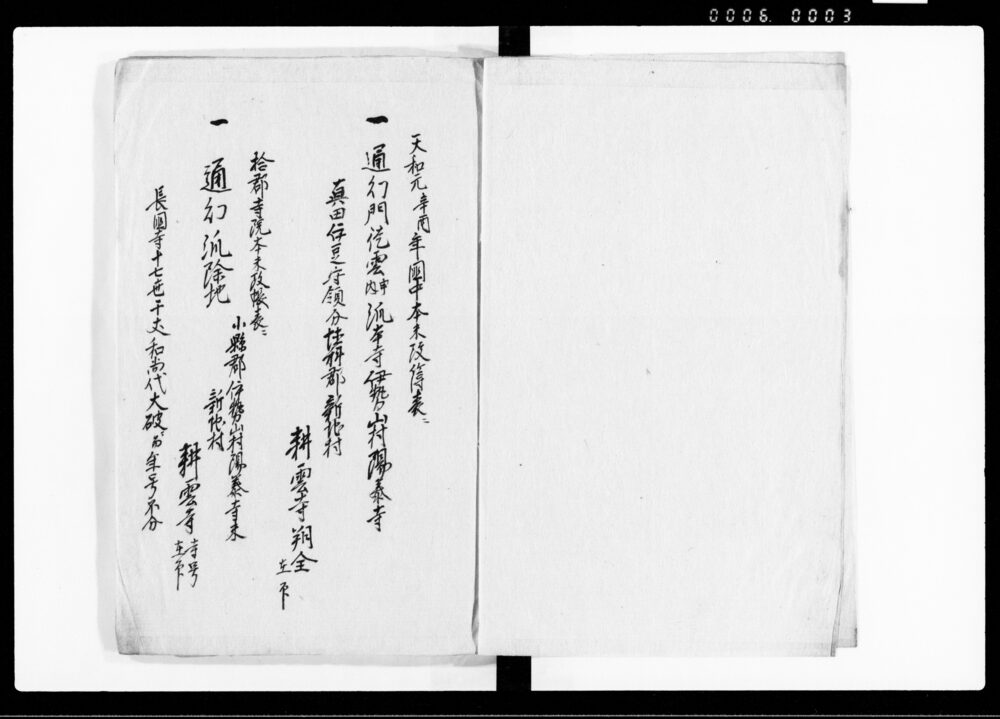 0006. 0003
天和元辛酉年國中本末改簿表ニ
一 通幻門徒雲内中派本寺伊勢山村陽泰寺
真田伊豆守領分埴科郡新地村
耕雲寺 翔全
在印
拾郡寺院本末改帳表ニ
一 通幻派除地 小縣郡伊勢山村陽泰寺末
新地村
耕雲寺 寺号
在印
長國寺十七世千丈和尚代大破ニ而年号不分